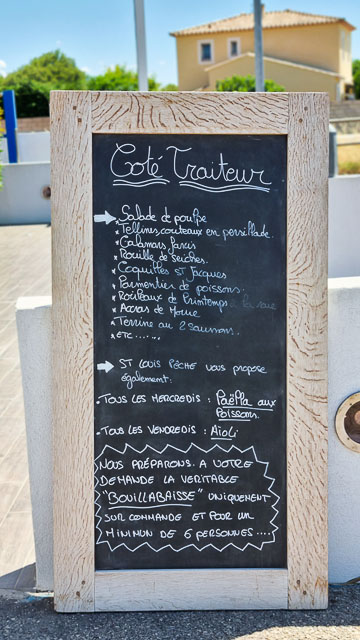 Coté Traiteur
Salade de poulpe
* Tellines, couteaux en persillade.
* Calamars farcis
* Rouille de seiches.
* Coquilles St Jacques
* Parmentier de poissons.
* Rouleaux de Printemps à la
* Accras de Morue
* Terrine au 2 saumons.
* ETC......
ST LOUIS PÊCHE VOUS PROPOSE
également:
• TOUS LES MERCREDIS : PAËPLA AUX
POISSONS.
• TOUS LES VENDREDIS : AÏOLI
NOUS PRÉPARONS A VOTRE
DEMANDE LA VERITABLE
"BOUILLABAISSE" UNIQUEMENT
SUR COMMANDE ET POUR UN
MINIMUN DE 6 PERSONNES ....